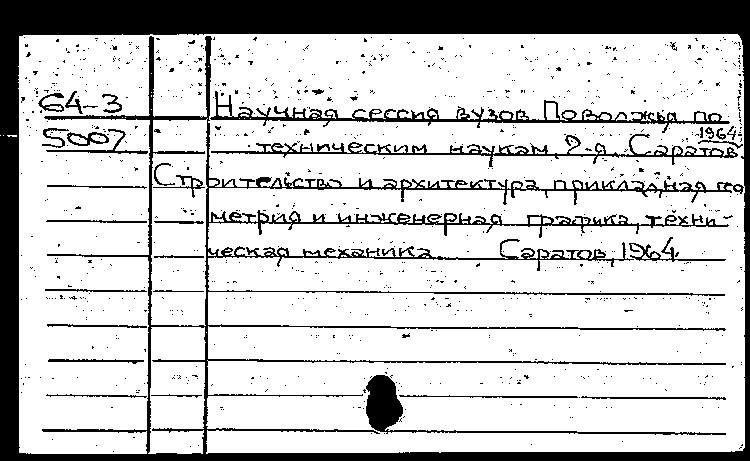 64-3 Научная сессия вузов Поволжья по
5007 техническим наукам, 2-я. Саратов. 1964.
Строительство и архитектура, прикладная гео
метрия и инженерная графика, техни-
ческая механика. Саратов, 1964.